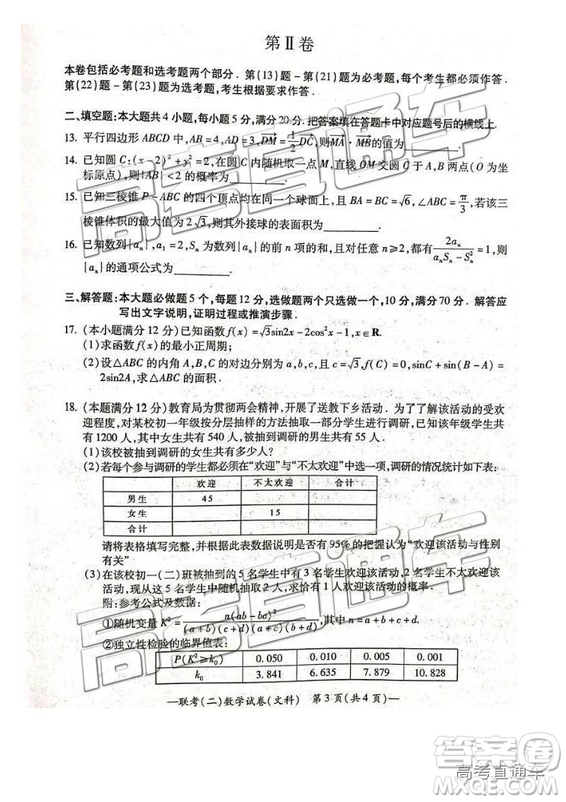 第Ⅱ卷
本卷包括必考题和选考题两个部分．第(13)题－第(21)题为必考题，每个考生都必须作答．
第(22)题－第(23)题为选考题，考生根据要求作答．
二、填空题：本大题共4小题，每小题5分，满分20分．把答案填在答题卡中对应题号后的横线上．
13. 平行四边形ABCD中，AB=4，AD=3，DM=1/2 DC，则MA·MB的值为________．
14. 已知圆C：(x-2)²+y²=2，在圆C内随机取一点M，直线OM交圆C于A，B两点(O为坐
标原点)，则|AB|<2的概率为________．
15. 已知三棱锥P-ABC的四个顶点均在同一个球面上，且BA=BC=√6，∠ABC=π/3，若该三
棱锥体积的最大值为2√3，则其外接球的表面积为________．
16. 已知数列{aₙ}，a₁=2，Sₙ为数列{aₙ}的前n项的和，且对任意n≥2，都有 2aₙ/(aₙSₙ-Sₙ²)=1，则
{aₙ}的通项公式为________．
三、解答题：本大题必做题5个，每题12分，选做题两个只选做一个，10分，满分70分．解答应
写出文字说明，证明过程或推演步骤．
17. (本小题满分12分)已知函数f(x)=√3sin2x-2cos²x-1，x∈R.
(1)求函数f(x)的最小正周期和最小值；
(2)设△ABC的内角A，B，C的对边分别为a，b，c，且c=√3，f(C)=0，sinC+sin(B-A)=
2sin2A，求△ABC的面积．
18. (本题满分12分)教育局为贯彻两会精神，开展了送教下乡活动．为了了解该活动的受欢
迎程度，对某校初一年级按分层抽样的方法抽取一部分学生进行调研，已知该年级学生共
有1200人，其中女生共有540人，被抽到调研的男生共有55人．
(1)该校被抽到调研的女生共有多少人？
(2)若每个参与调研的学生都必须在“欢迎”与“不太欢迎”中选一项，调研的情况统计如下：
欢迎 不太欢迎 合计
男生 45
女生 15
合计
请将表格填写完整，并根据此表数据说明是否有95%的把握认为“欢迎该活动与性别
有关”
(3)在该校初一(二)班被抽到的5名学生中有3名学生欢迎该活动，2名学生不太欢迎该
活动，现从这5名学生中随机抽取2人，求恰有1人欢迎该活动的概率．
附：参考公式及数据：
①随机变量K²=n(ab-bc)²/(a+b)(c+d)(a+c)(b+d)，其中n=a+b+c+d.
②独立性检验的临界值表：
P(K²≥k₀) 0.050 0.010 0.005 0.001
k₀ 3.841 6.635 7.879 10.828
—联考(二)数学试卷(文科) 第3页(共4页)—
高考直通车
高考直通车
答案圈
高考直通车
MXQE.COM